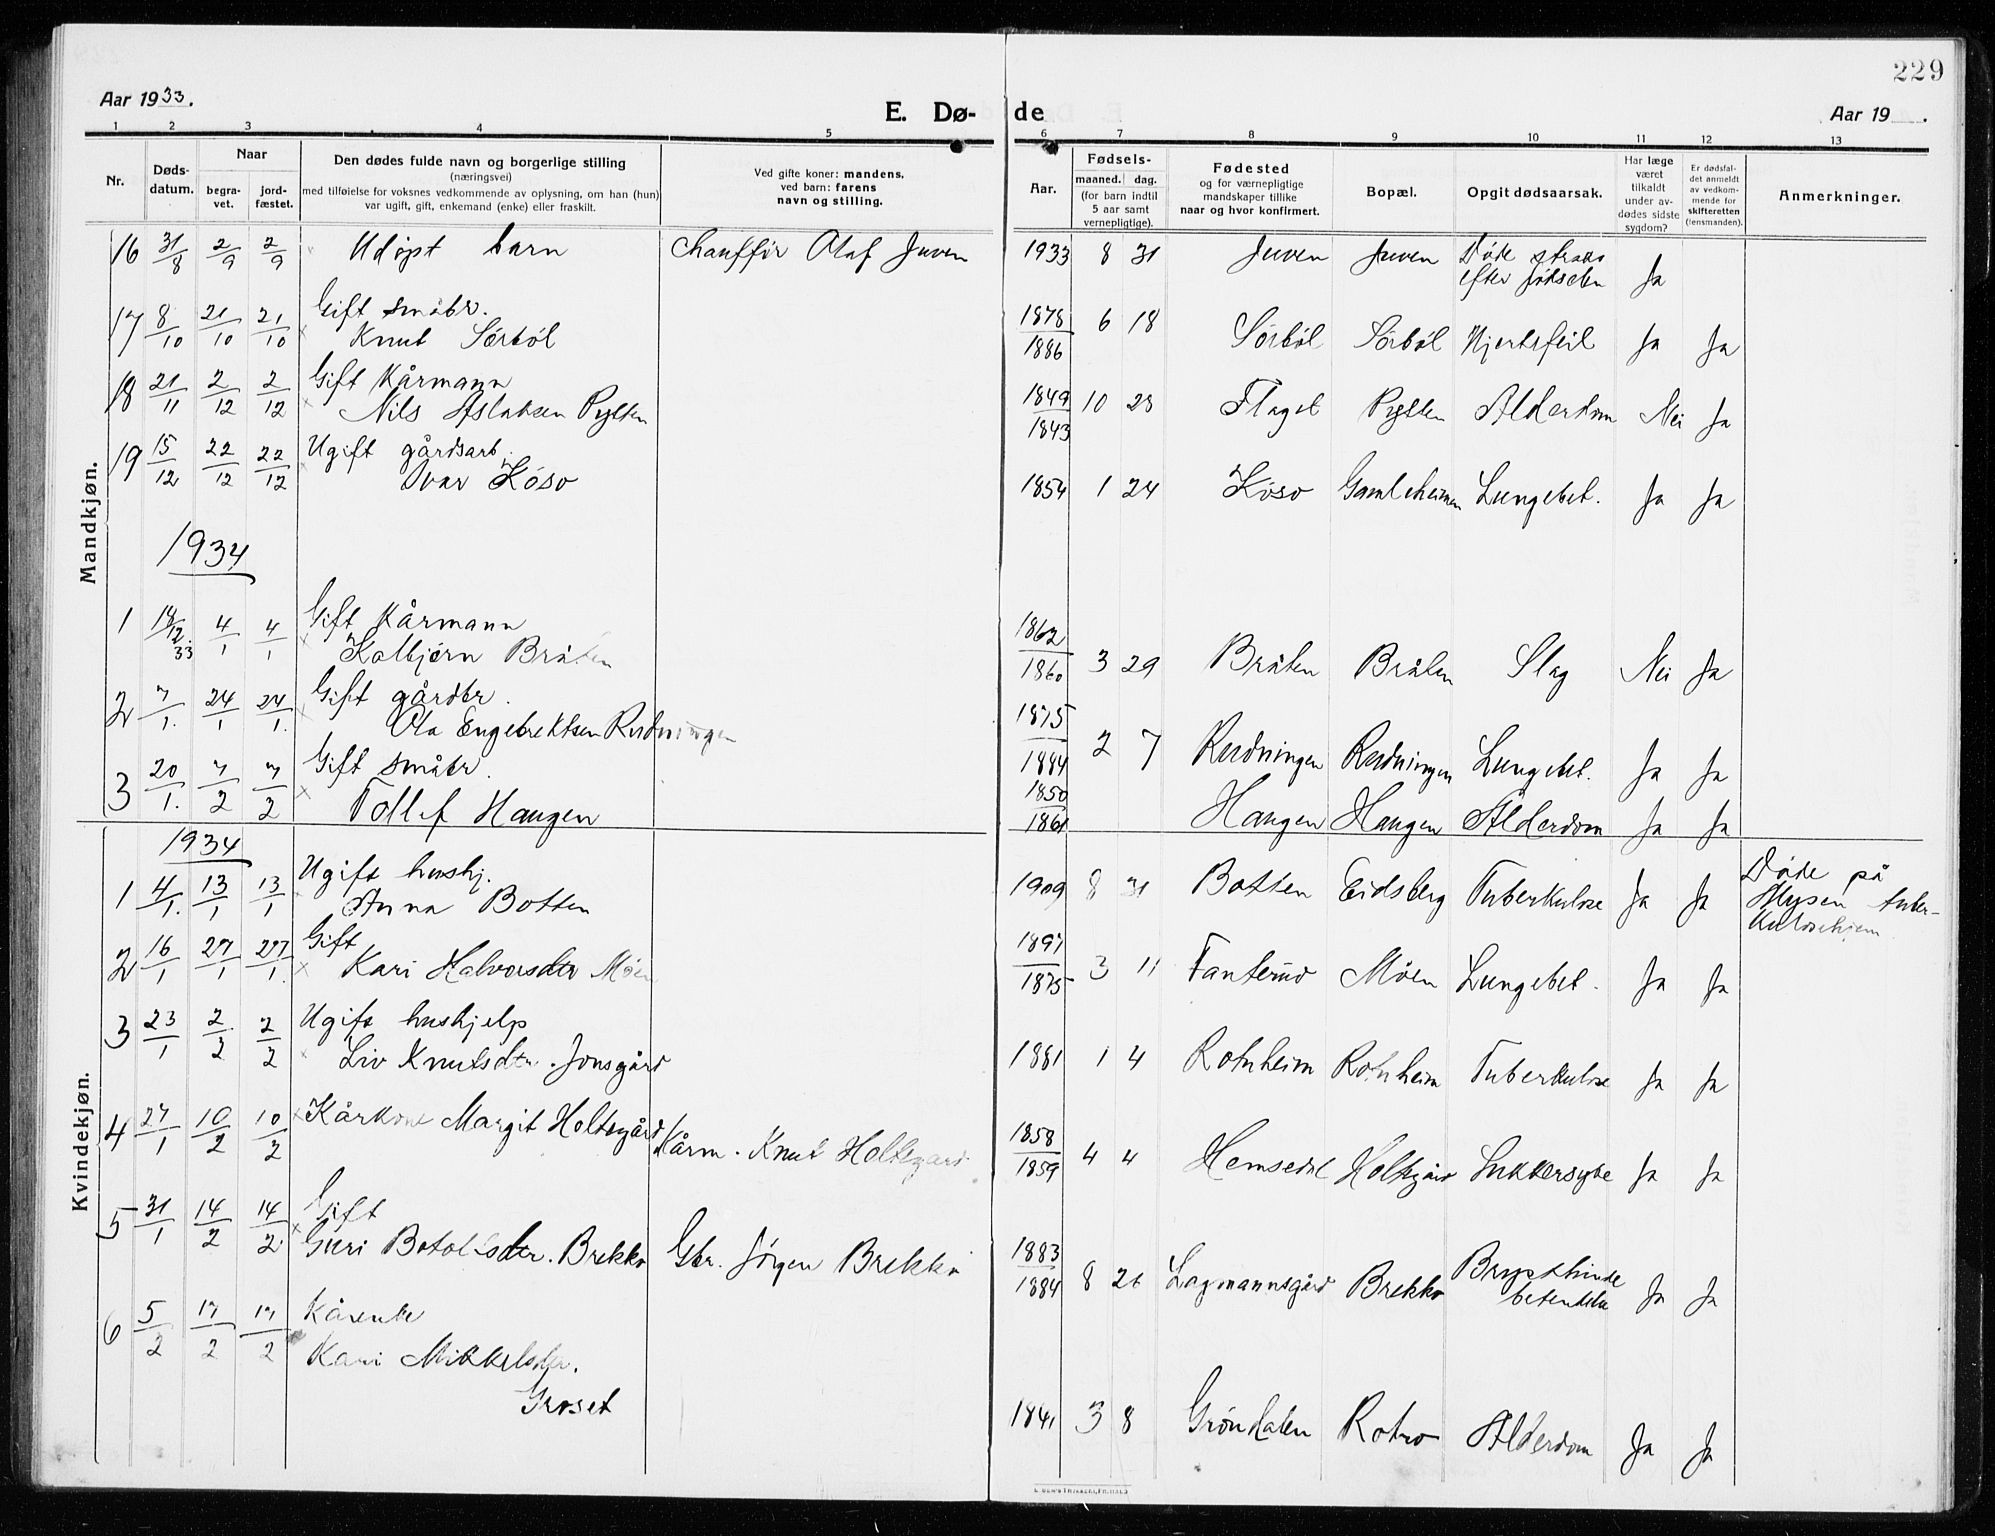 229
Aar 1933.
E. Dø-
de
Aar 19 .
1 2 3 4 5 6 7 8 9 10 11 12 13
Nr.
Døds-
datum.
Naar
begra-
vet.
jord-
fæstet.
Den dødes fulde navn og borgerlige stilling
(næringsvei)
med tilføielse for voksnes vedkommende av oplysning, om han (hun)
var ugift, gift, enkemand (enke) eller fraskilt.
Ved gifte koner: mandens.
ved barn: farens
navn og stilling.
Aar.
Fødsels-
maaned. dag.
(for barn indtil
5 aar samt
vernepligtige).
Fødested
og for værnepligtige
mandskaper tillike
naar og hvor konfirmert.
Bopæl.
Opgit dødsaarsak.
Har læge
været
tilkaldt
under av-
dødes sidste
sygdom?
Er dødsfal-
det anmeldt
av vedkom-
mende for
skifteretten
(lensmanden).
Anmerkninger.
Mandkjøn.
16 31/8 2/9 2/9 Udøpt barn Chauffør Olaf Juven 1933 8 31 Juven Juven Døde straks
efter fødselen Ja
17 8/10 21/10 21/10 Gift småbr.
Knut Sørbøl 1878/1886 6 18 Sørbøl Sørbøl Hjertefeil Ja Ja
18 21/11 2/12 2/12 Gift Kårmann
Nils Aslaksen Pytten 1849/1843 10 28 Flaget Pytten Alderdom Nei Ja
19 15/12 22/12 22/12 Ugift gårdsarb.
Ivar Köso 1854 1 24 Köso Gamleheimen Lungebet. Ja Ja
1934
1 18/12 33 4/1 4/1 Gift Kårmann
Kolbjørn Bråten 1862/1860 3 29 Bråten Bråten Slag Nei Ja
2 7/1. 24/1 24/1. Gift gårdbr.
Ola Engebrektsen Rudningen 1875/1884 2 7 Rudningen Rudningen Lungebet. Ja Ja
3 20/1. 7/2 7/2 Gift småbr.
Tollef Haugen 1850/1861 Haugen Haugen Alderdom Ja Ja
Kvindekjøn.
1934
1 4/1. 13/1 13/1 Ugift hushj.
Anna Botten 1909 8 31 Botten Eidsberg Tuberkulose Ja Ja Døde på
Mysen tuber-
kulosehjem
2 16/1 27/1 27/1. Gift
Kari Halvorsdtr Møen 1897/1875 3 11 Fanterud Møen Lungebet. Ja Ja
3 23/1 2/2 2/2 Ugift hushjelp
Liv Knutsdtr. Jonsgård 1881 1 4 Rotnheim Rotnheim Tuberkulose Ja Ja
4 27/1 10/2 10/2 Kårkone Margit Holtegård Kårm. Knut Holtegard 1858/1859 4 4 Hemsedal Holtegård Sukkersyke Ja Ja
5 31/1 14/2 14/2 Gift
Guri Botolfsdtr. Brekko Gbr. Jørgen Brekko 1883/1884 8 26 Lagmannsgård Brekko Brysthinde
betendelse Ja Ja
6 5/2 17/2 17/2 Kårenke
Kari Mikkelsdtr.
Groset 1841 3 8 Grøndalen Rotno Alderdom Ja Ja